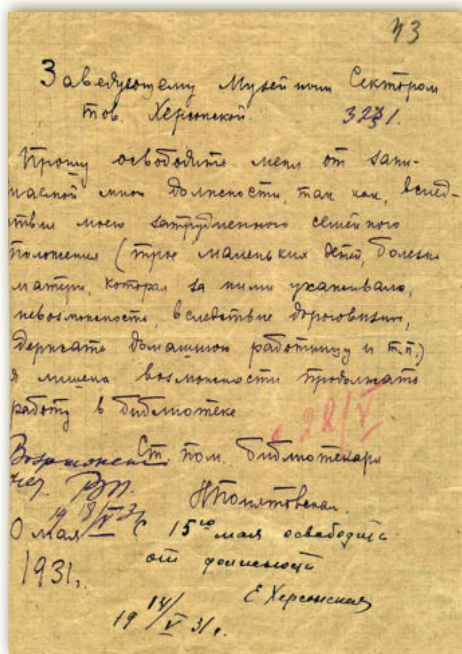 43
Заведующему Музейным Сектором
тов. Херсонской.
Прошу освободить меня от зани-
маемой мною должности, так как, вслед-
ствие моего затруднённого семейного
положения (трое маленьких детей, болезнь
матери, которая за ними ухаживала,
невозможность, вследствие дороговизны,
держать домашнюю работницу и т.п.)
я лишена возможности продолжать
работу в библиотеке
с 28/V.
Ст. пом. библиотекаря
Возражений
нет.
НПонятовская.
18/V 31
0 мая
1931.
С 15го мая освободить
от должности
Е. Херсонская
19 14/V 31 г.